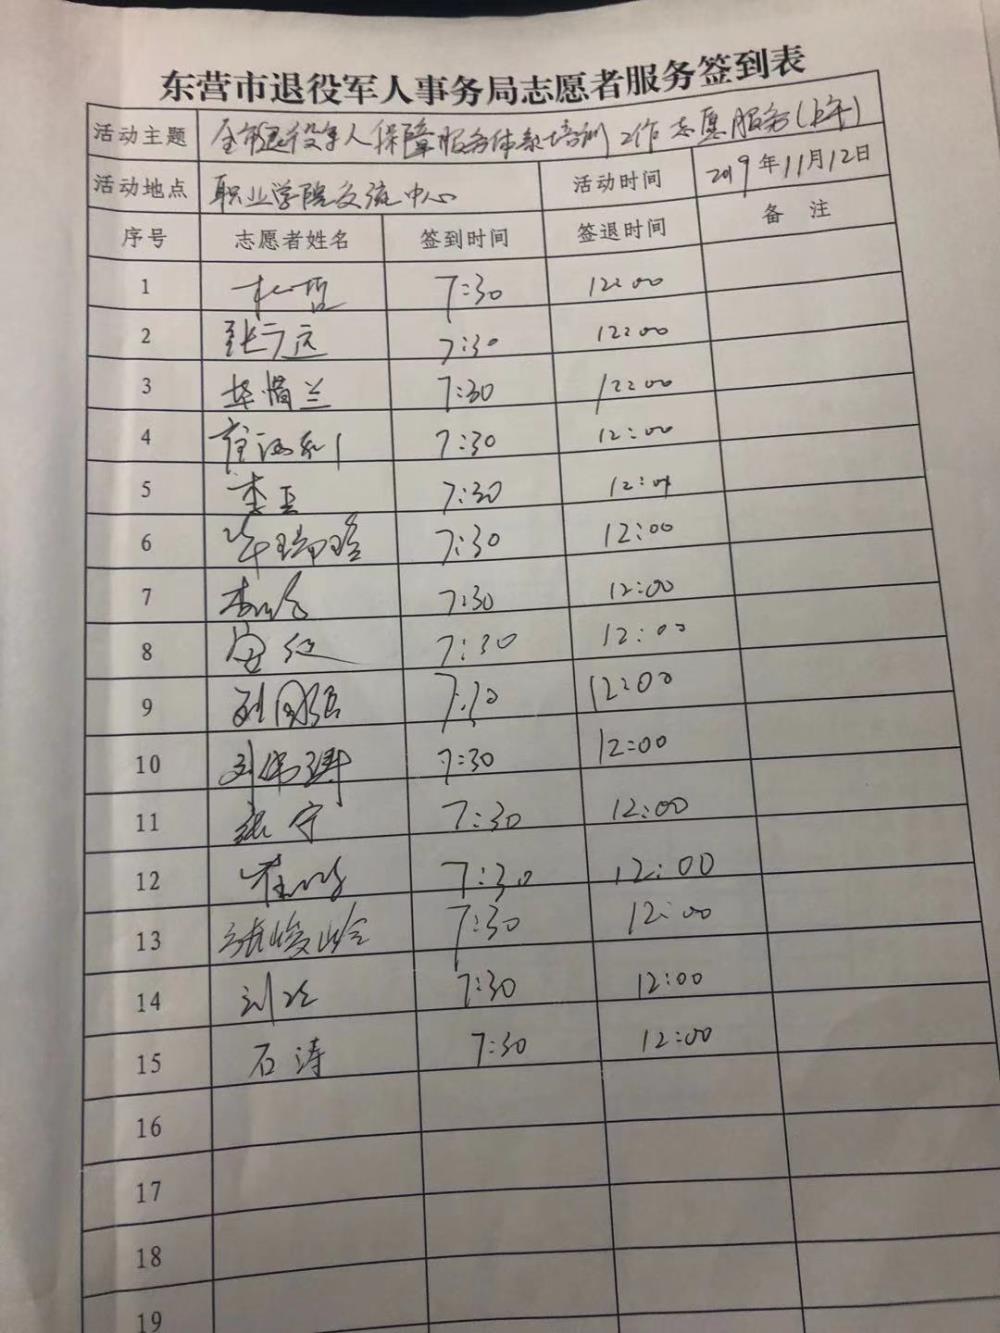 东营市退役军人事务局志愿者服务签到表
活动主题 全市退役军人保障服务体系培训工作志愿服务(上午)
活动地点 职业学院交流中心 活动时间 2019年11月12日
序号 志愿者姓名 签到时间 签退时间 备注
1 杜哲 7:30 12:00
2 张广远 7:30 12:00
3 7:30 12:00
4 7:30 12:00
5 李玉 7:30 12:00
6 7:30 12:00
7 7:30 12:00
8 7:30 12:00
9 刘国强 7:30 12:00
10 7:30 12:00
11 张宁 7:30 12:00
12 7:30 12:00
13 张峻岭 7:30 12:00
14 7:30 12:00
15 石涛 7:30 12:00
16
17
18
19